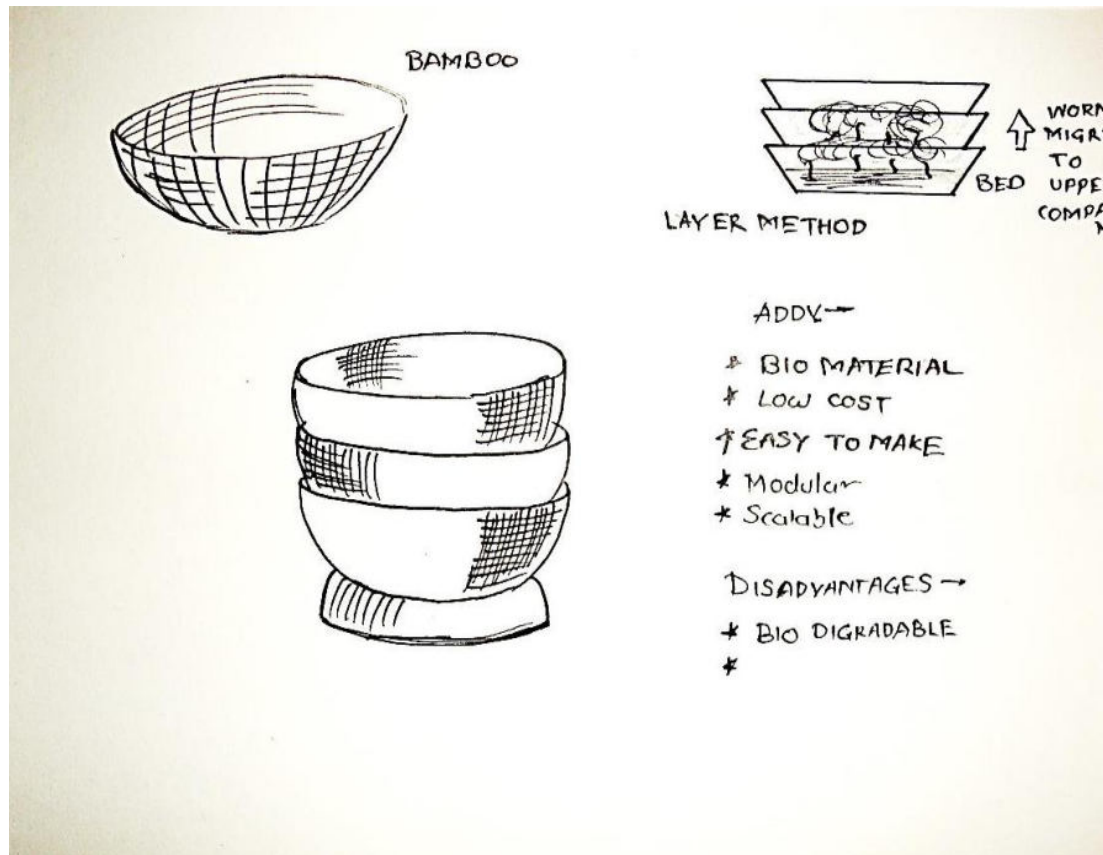 BAMBOO
WORM
MIGR
TO
UPPE
COMPA
BED
LAYER METHOD
ADDV.→
* BIO MATERIAL
* LOW COST
* EASY TO MAKE
* Modular
* Scalable
DISADVANTAGES →
* BIO DIGRADABLE
*